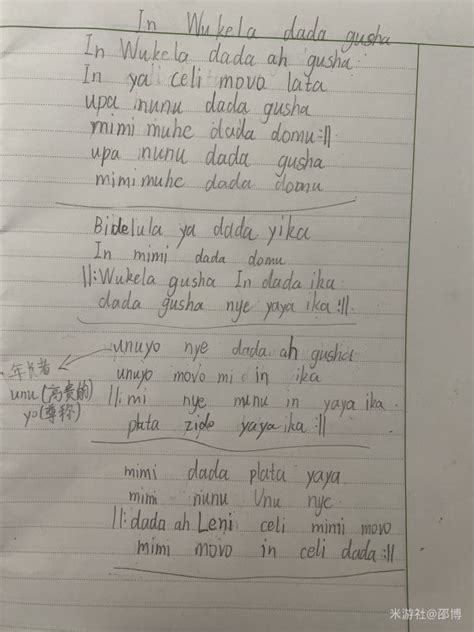 In Wukela dada gusha
In Wukela dada ah gusha
In ya celi movo lata
upa nunu dada gusha
mimi muhe dada domu:||
upa nunu dada gusha
mimi muhe dada domu
Bidelula ya dada yika
In mimi dada domu
||:Wukela gusha In dada ika
dada gusha nye yaya ika:||
unuyo nye dada ah gusha
unuyo movo mi in ika
||:mi nye munu in yaya ika
plata zido yaya ika:||
年长者
unu(高贵的)
yo(尊称)
mimi dada plata yaya
mimi nunu Unu nye
||:dada ah Leni celi mimi movo
mimi movo in celi dada:||
米游社@邵博